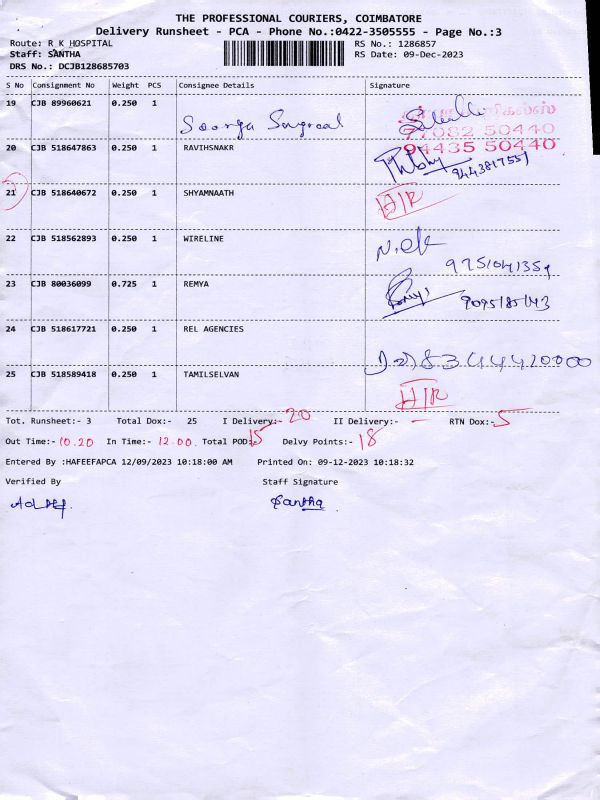 THE PROFESSIONAL COURIERS, COIMBATORE
Delivery Runsheet - PCA - Phone No.:0422-3505555 - Page No.:3
Route: R K HOSPITAL RS No.: 1286857
Staff: SANTHA RS Date: 09-Dec-2023
DRS No.: DCJB128685703
S No Consignment No Weight PCS Consignee Details Signature
19 CJB 89960621 0.250 1 Soorya Surgical
77082 50440
94435 50440
20 CJB 518647863 0.250 1 RAVIHSNAKR
9443817551
21 CJB 518640672 0.250 1 SHYAMNAATH
22 CJB 518562893 0.250 1 WIRELINE
23 CJB 80036099 0.725 1 REMYA
24 CJB 518617721 0.250 1 REL AGENCIES
25 CJB 518589418 0.250 1 TAMILSELVAN
Tot. Runsheet:- 3 Total Dox:- 25 I Delivery:- 20 II Delivery:- - RTN Dox:- 5
Out Time:- 10.20 In Time:- 12.00 Total POD:- 15 Delvy Points:- 18
Entered By :HAFEEFAPCA 12/09/2023 10:18:00 AM Printed On: 09-12-2023 10:18:32
Verified By Staff Signature
Santha